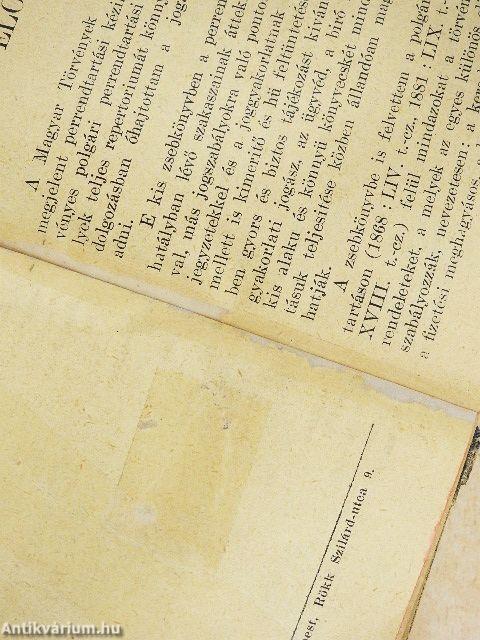 ELŐ
A Magyar Törvények
megjelent perrendtartási kézi
vényes polgári perrendtartási
lyék teljes repertoriumát könny
dolgozásban óhajtottam a jog
adni.
E kis zsebkönyvben a perrend
hatályban lévő szakaszainak áttek
val, más jogszabályokra való ponto
jegyzetekkel és a joggyakorlatnak
mellett is kimerítő és hű feltüntetés
ben gyors és biztos tájékozást kíván
gyakorlati jogász, az ügyvéd, a bíró
kis alaku és könnyü könyvecskét mind
tásuk teljesítése közben állandóan mag
hatják.
A zsebkönyvbe is felvettem a polgár
tartáson (1868 : LIV t.-cz., 1881 : LIX. t.-
XVIII. t.-cz.) felül mindazokat a törvén
rendeleteket, a melyek az egyes különös
szabályozzák, nevezetesen: a
a fizetési meghagyásos,
pest, Rökk Szilárd-utca 9.
Antikvárium.hu